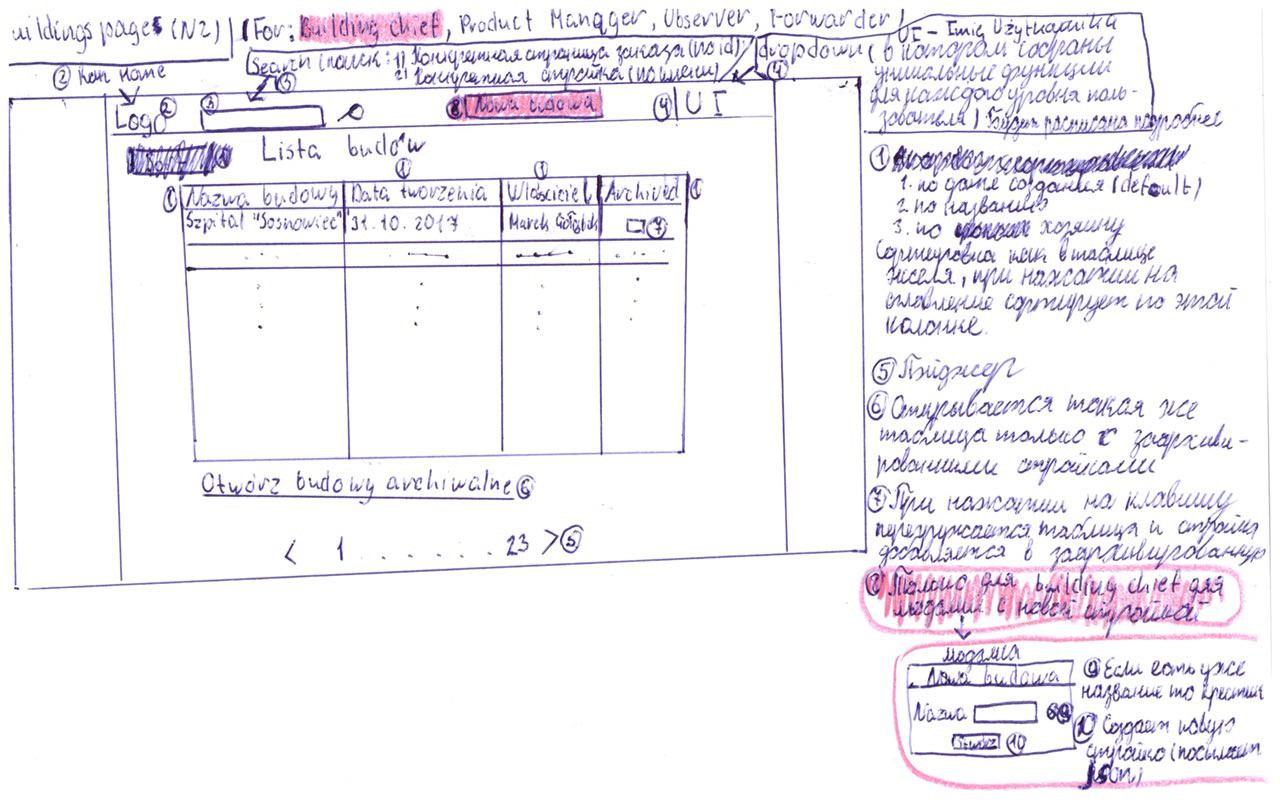 uildings pages (N2) (For: Building chief, Product Manager, Observer, Forwarder)
Search (поиск: 1) Конкретная страница заказа (по id)
2) Конкретная стройка (по имени)
dropdown (
UI - Imię Użytkownika
в котором собраны
уникальные функции
для каждого уровня поль-
зователя) Будет расписана подробнее
② Кот Home
③
④
Logo ② ③ ⑧ Nowa budowa ④ UI
Lista budów
① ①
① Nazwa budowy Data tworzenia Właściciel Archived ①
Szpital "Sosnowiec" 31.10.2017 Marek ⑦
Otwórz budowy archiwalne ⑥
< 1 . . . . . . 23 > ⑤
①
1. по дате создания (default)
2. по названию
3. по хозяину
Сортировка как в таблице
экселя, при нажатии на
оглавление сортирует по этой
колонке.
⑤ Пэйджер
⑥ Открывается такая же
таблица только с заархиви-
рованными стройками
⑦ При нажатии на клавишу
перегружается таблица и стройка
добавляется в заархивированную
⑧ Только для building chief для
модалки с новой стройкой
модалка
Nowa budowa
Nazwa ⑨
Stwórz ⑩
⑨ Если есть уже
название то крестик
⑩ Создает новую
стройку (посылает
JSON)